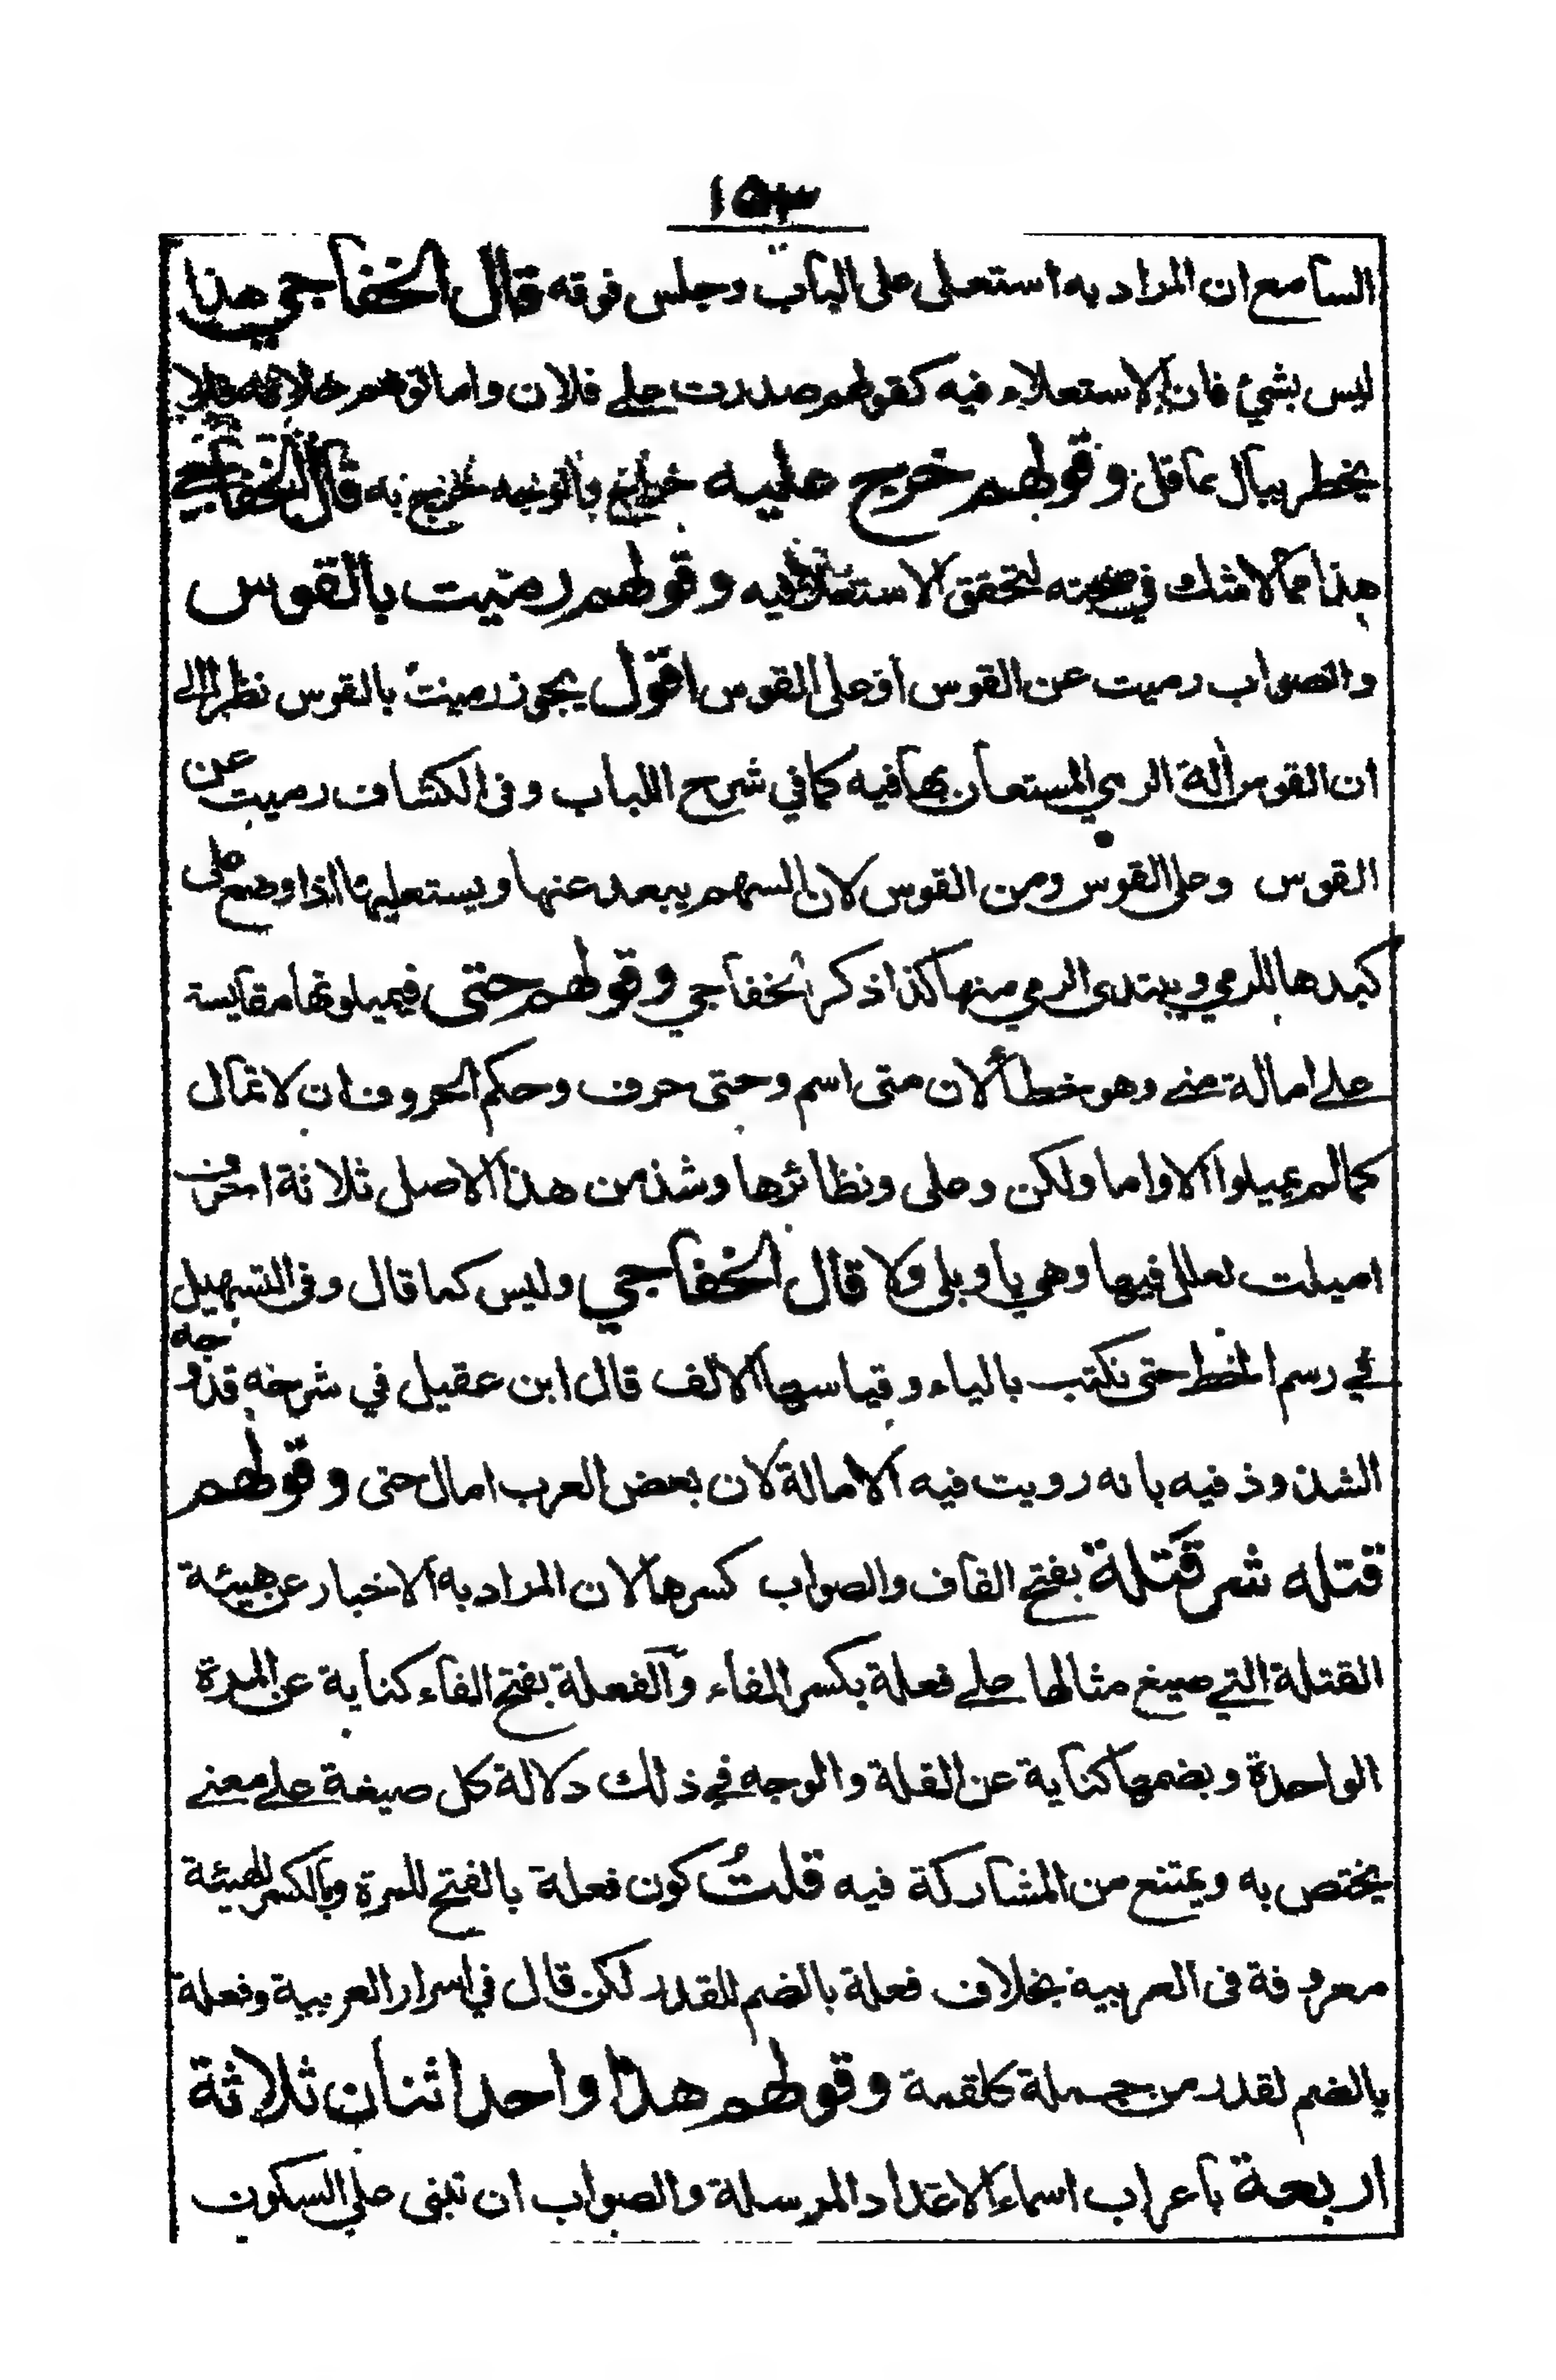 ١٥٣
السامع ان المراد به استعلى على الباب وجلس فوقه قال الخفاجي هذا
ليس بشئ فان الاستعلاء فيه كقولهم صدرت على فلان واما توهم خلافه فلا
يخطر ببال عاقل وقولهم خرج عليه خراج والتوجيه خرج به قال الخفاجي
هذا مما لا شك في صحته لتحقق الاستعلاء فيه وقولهم رميت بالقوس
والصواب رميت عن القوس او على القوس اقول يجوز رميت بالقوس نظرا الى
ان القوس الة الرمي المستعان بها فيه كما في شرح اللباب وفى الكشاف رميت عن
القوس وعلى القوس ومن القوس لان السهم يبعد عنها ويستعليها اذا وضع على
كبدها للرمي ويبتدى الرمي منها كذا ذكر الخفاجي وقولهم حتى فيميلونها مقايسة
على امالة متى وهو خطأ لان متى اسم وحتى حرف وحكم الحروف ان لا تمال
كما لم يميلوا الا واما ولكن وعلى ونظائرها وشذ من هذا الاصل ثلاثة احرف
اميلت لعلل فيها وهي يا وبلى ولا قال الخفاجي وليس كما قال وفى التسهيل
في رسم الخط حتى تكتب بالياء وقياسها الالف قال ابن عقيل في شرحه قد وجه
الشذوذ فيه بانه رويت فيه الامالة لان بعض العرب امال حتى وقولهم
قتله شر قَتلة بفتح القاف والصواب كسرها لان المراد به الاخبار عن هيئة
القتلة التي صيغ مثالها على فعلة بكسر الفاء والفعلة بفتح الفاء كناية عن المرة
الواحدة وبضمها كناية عن القلة والوجه في ذلك دلالة كل صيغة على معنى
يختص به ويمتنع من المشاركة فيه قلتُ كون فعلة بالفتح للمرة وبالكسر للهيئة
معروفة فى العربية بخلاف فعلة بالضم للقدر لكن قال في اسرار العربية وفعلة
بالضم لقدر من جملة كلقمة وقولهم هذا واحد اثنان ثلاثة
اربعة باعراب اسماء الاعداد المرسلة والصواب ان تبنى على السكون